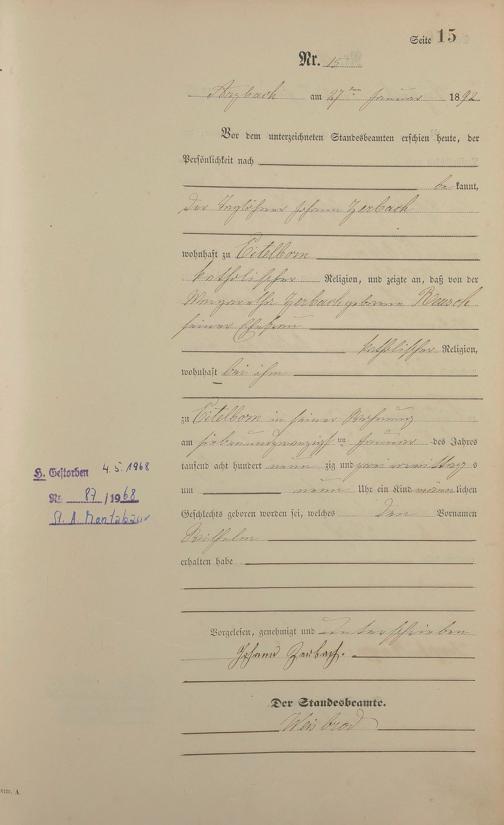 Seite 15
Nr. 15
Arzbach am 27ten Januar 1892
Vor dem unterzeichneten Standesbeamten erschien heute, der
Persönlichkeit nach
bekannt,
der Taglöhner Johann Zerbach
wohnhaft zu Eitelborn
katholischer Religion, und zeigte an, daß von der
Margaretha Zerbach geborene
seiner Ehefrau
katholischer Religion,
wohnhaft bei ihm
zu Eitelborn in seiner Wohnung
am siebenundzwanzigsten Januar des Jahres
tausend acht hundert neunzig und zwei Mittags
um neun Uhr ein Kind männlichen
Geschlechts geboren worden sei, welches den Vornamen
Wilhelm
erhalten habe
Vorgelesen, genehmigt und unterschrieben
Johann Zerbach.
Der Standesbeamte.
Weisbrod
H. Gestorben 4.5.1968
Nr. 87/1968
St. A. Montabaur
VIII. A.